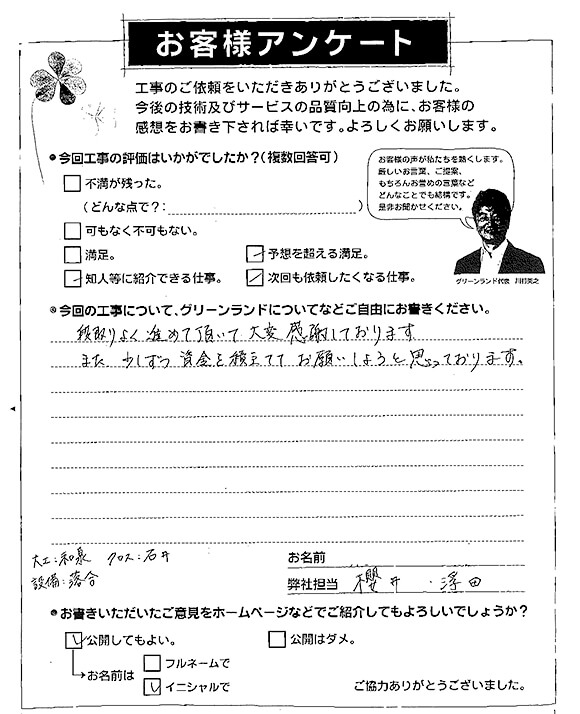 お客様アンケート
工事のご依頼をいただきありがとうございました。
今後の技術及びサービスの品質向上の為に、お客様の
感想をお書き下されば幸いです。よろしくお願いします。
●今回工事の評価はいかがでしたか？(複数回答可)
不満が残った。
(どんな点で？: )
可もなく不可もない。
満足。
予想を超える満足。
知人等に紹介できる仕事。
次回も依頼したくなる仕事。
お客様の声が私たちを動くします。
厳しいお言葉、ご提案、
もちろんお誉めの言葉など
どんなことでも結構です。
是非お聞かせください。
グリーンランド代表
●今回の工事について、グリーンランドについてなどご自由にお書きください。
段取りよく進めて頂いて大変感謝しております
また少しずつ資金を積立てて お願いしようと思っております。
大工:和泉 クロス:石井
設備:落合
お名前
弊社担当 櫻井・浮田
●お書きいただいたご意見をホームページなどでご紹介してもよろしいでしょうか？
公開してもよい。
公開はダメ。
お名前は
フルネームで
イニシャルで
ご協力ありがとうございました。